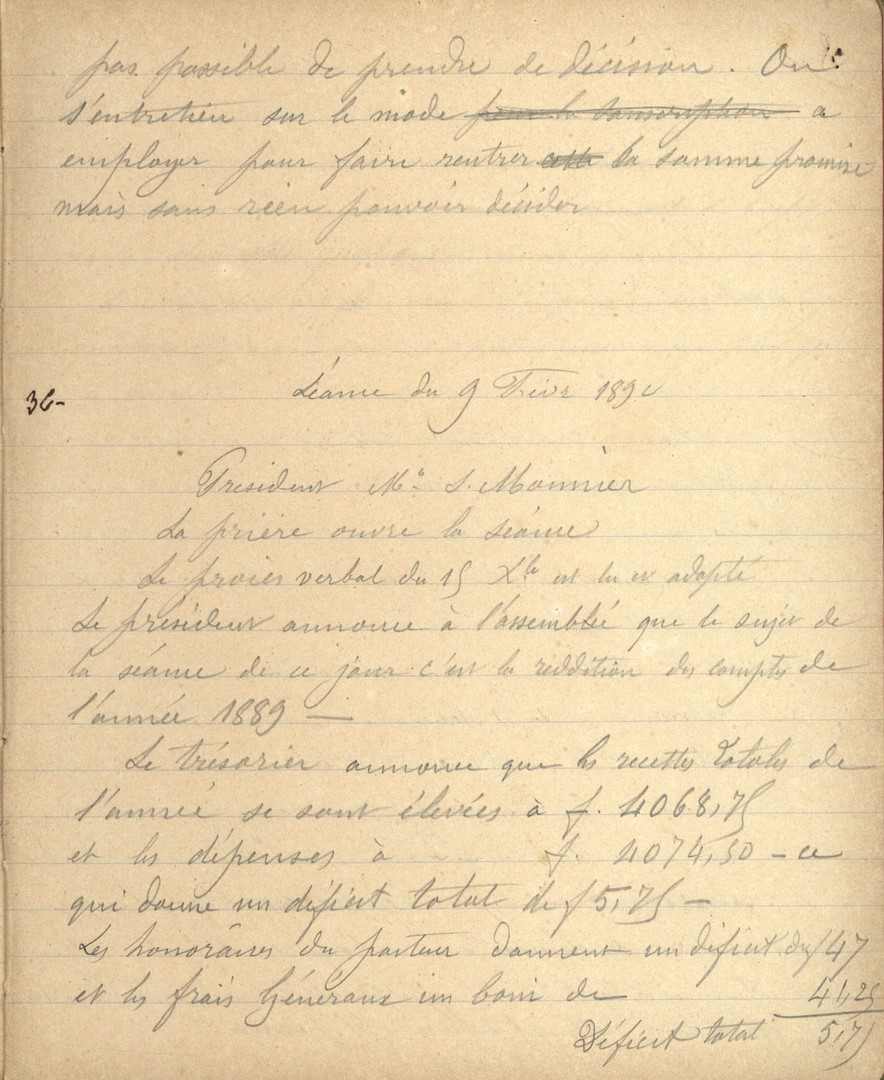 pas possible de prendre de décision. On
s'entretien sur le mode pour la souscription a
employer pour faire rentrer cette la somme promise
mais sans rien pouvoir décider
36-
Séance du 9 Fevr 1890
President Mr. S. Monnier
La prière ouvre la séance
Le procès verbal du 15 Xbe est lu et adopté
Le président annonce à l'assemblée que le sujet de
la séance de ce jour c'est la reddition des comptes de
l'année 1889 —
Le trésorier annonce que les recettes totales de
l'année se sont élevées à f. 4068,75
et les dépenses à f. 4074,50 - ce
qui donne un déficit total de f 5,75 -
Les honoraires du pasteur donnent un déficit de f 47
et les frais Généraux un boni de 41,25
Déficit total 5,75